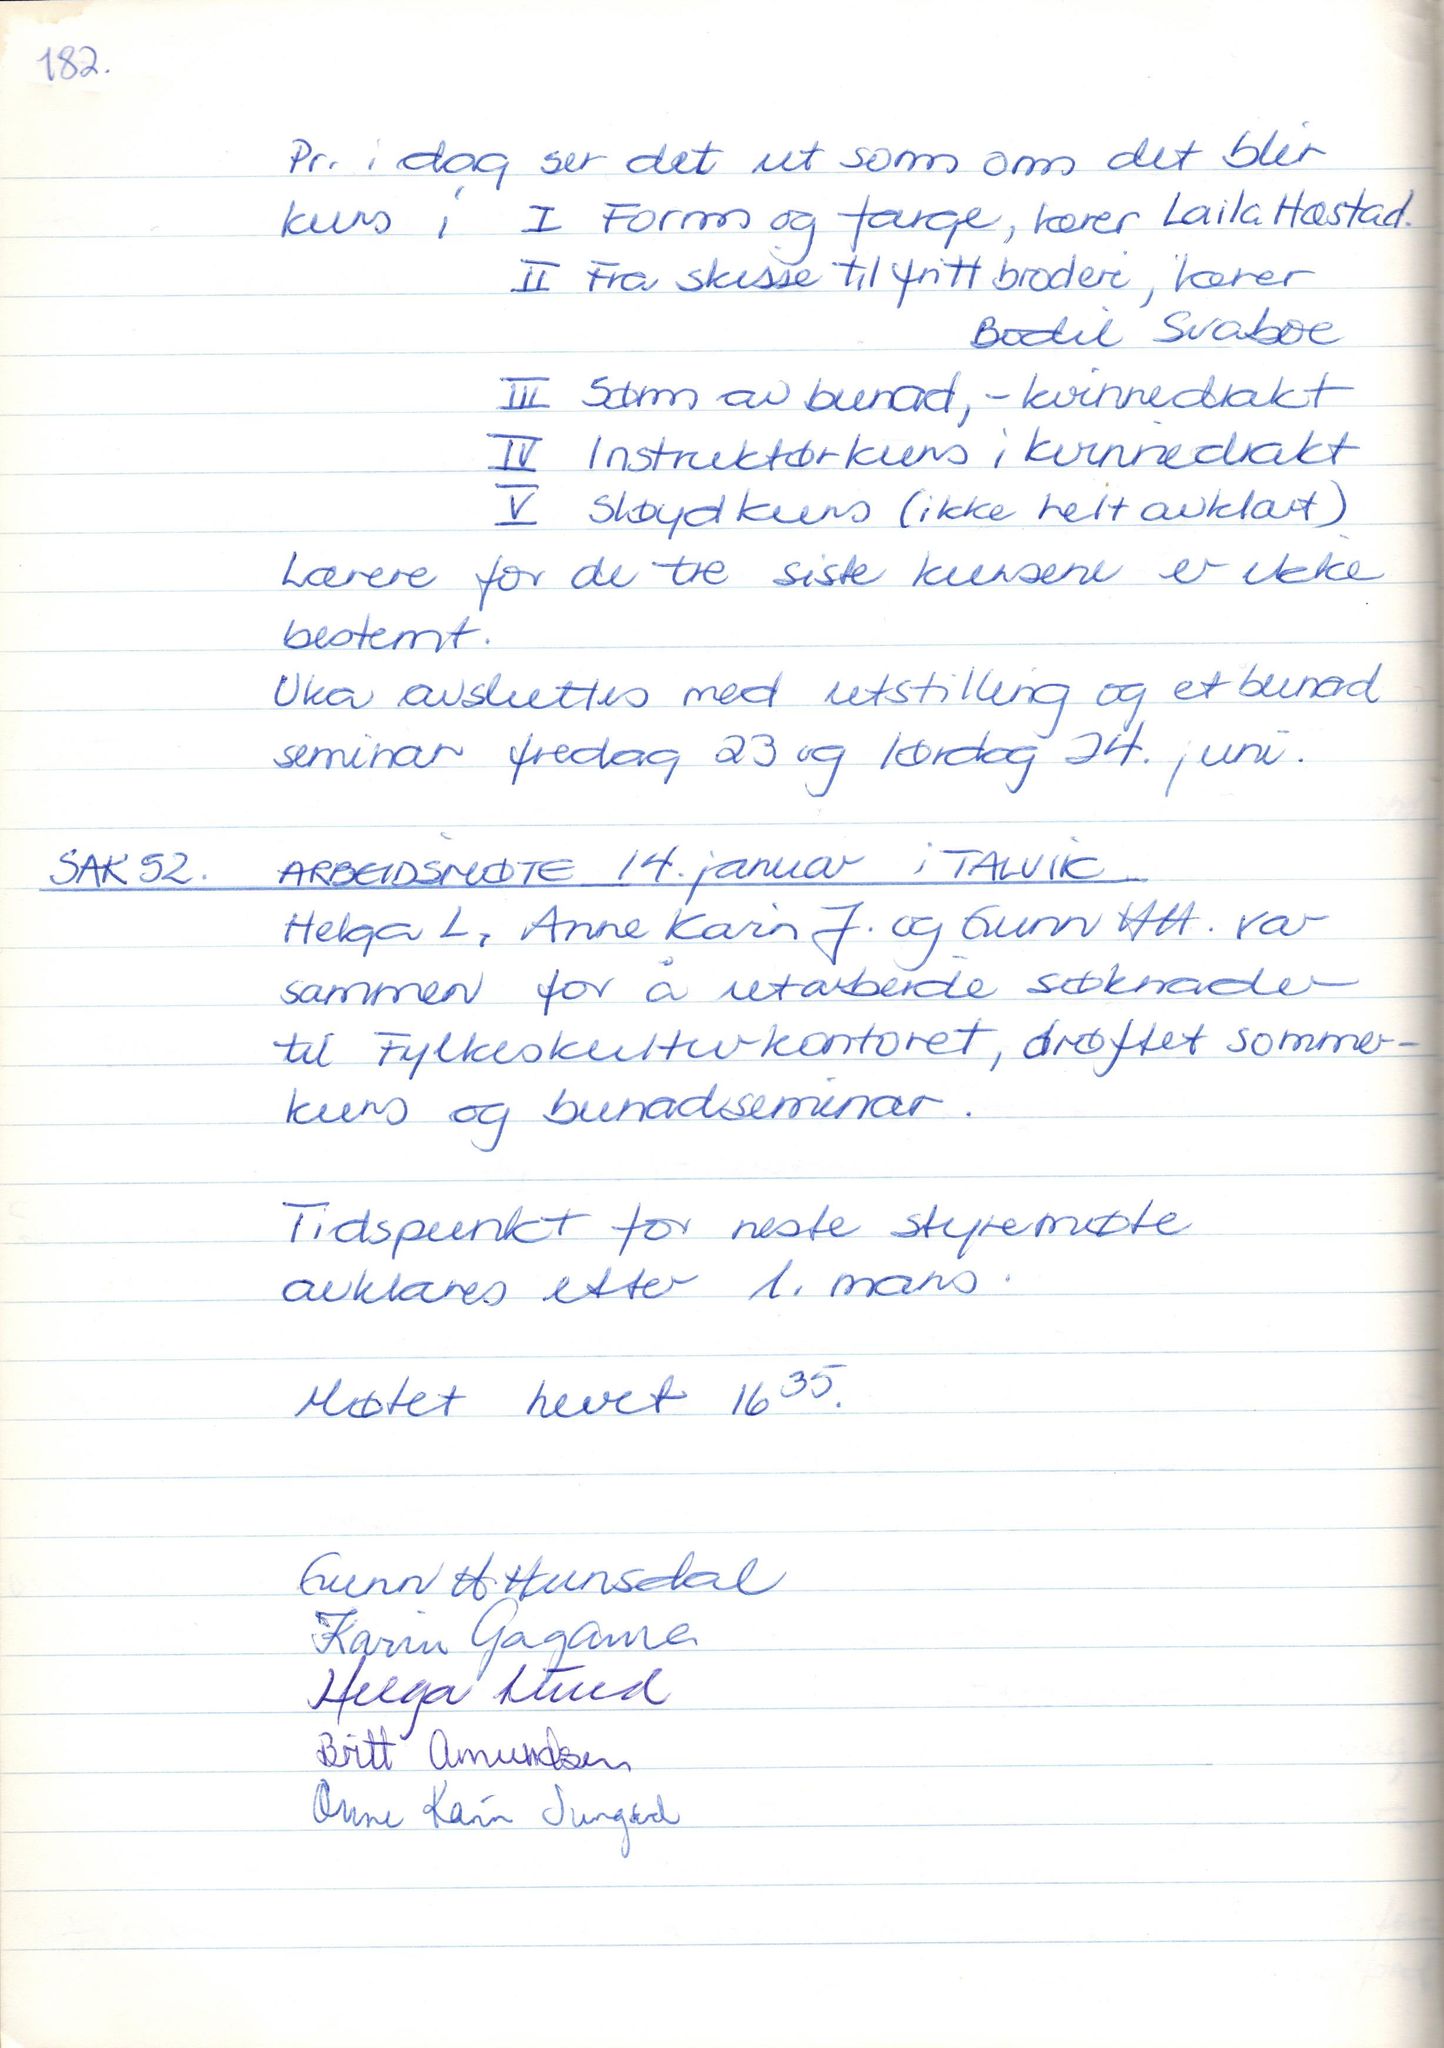 182.
Pr. i dag ser det ut som om det blir
kurs i I Form og farge, lærer Laila Hæstad.
II Fra skisse til fritt broderi, lærer
Bodil Svaboe
III Søm av bunad, - kvinnedrakt
IV Instruktørkurs i kvinnedrakt
V Sløydkurs (ikke helt avklart)
Lærere for de tre siste kursene er ikke
bestemt.
Uka avsluttes med utstilling og et bunad
seminar fredag 23 og lørdag 24. juni.
SAK 52. ARBEIDSMØTE 14. januar i TALVIK
Helga L, Anne Karin J. og Gunn HH. var
sammen for å utarbeide søknader
til Fylkeskulturkontoret, drøftet sommer-
kurs og bunadseminar.
Tidspunkt for neste styremøte
avklares etter 1. mars.
Møtet hevet 16 35.
Gunn H. Hunsdal
Karin Gagama
Helga
Britt Amundsen
Anne Karin